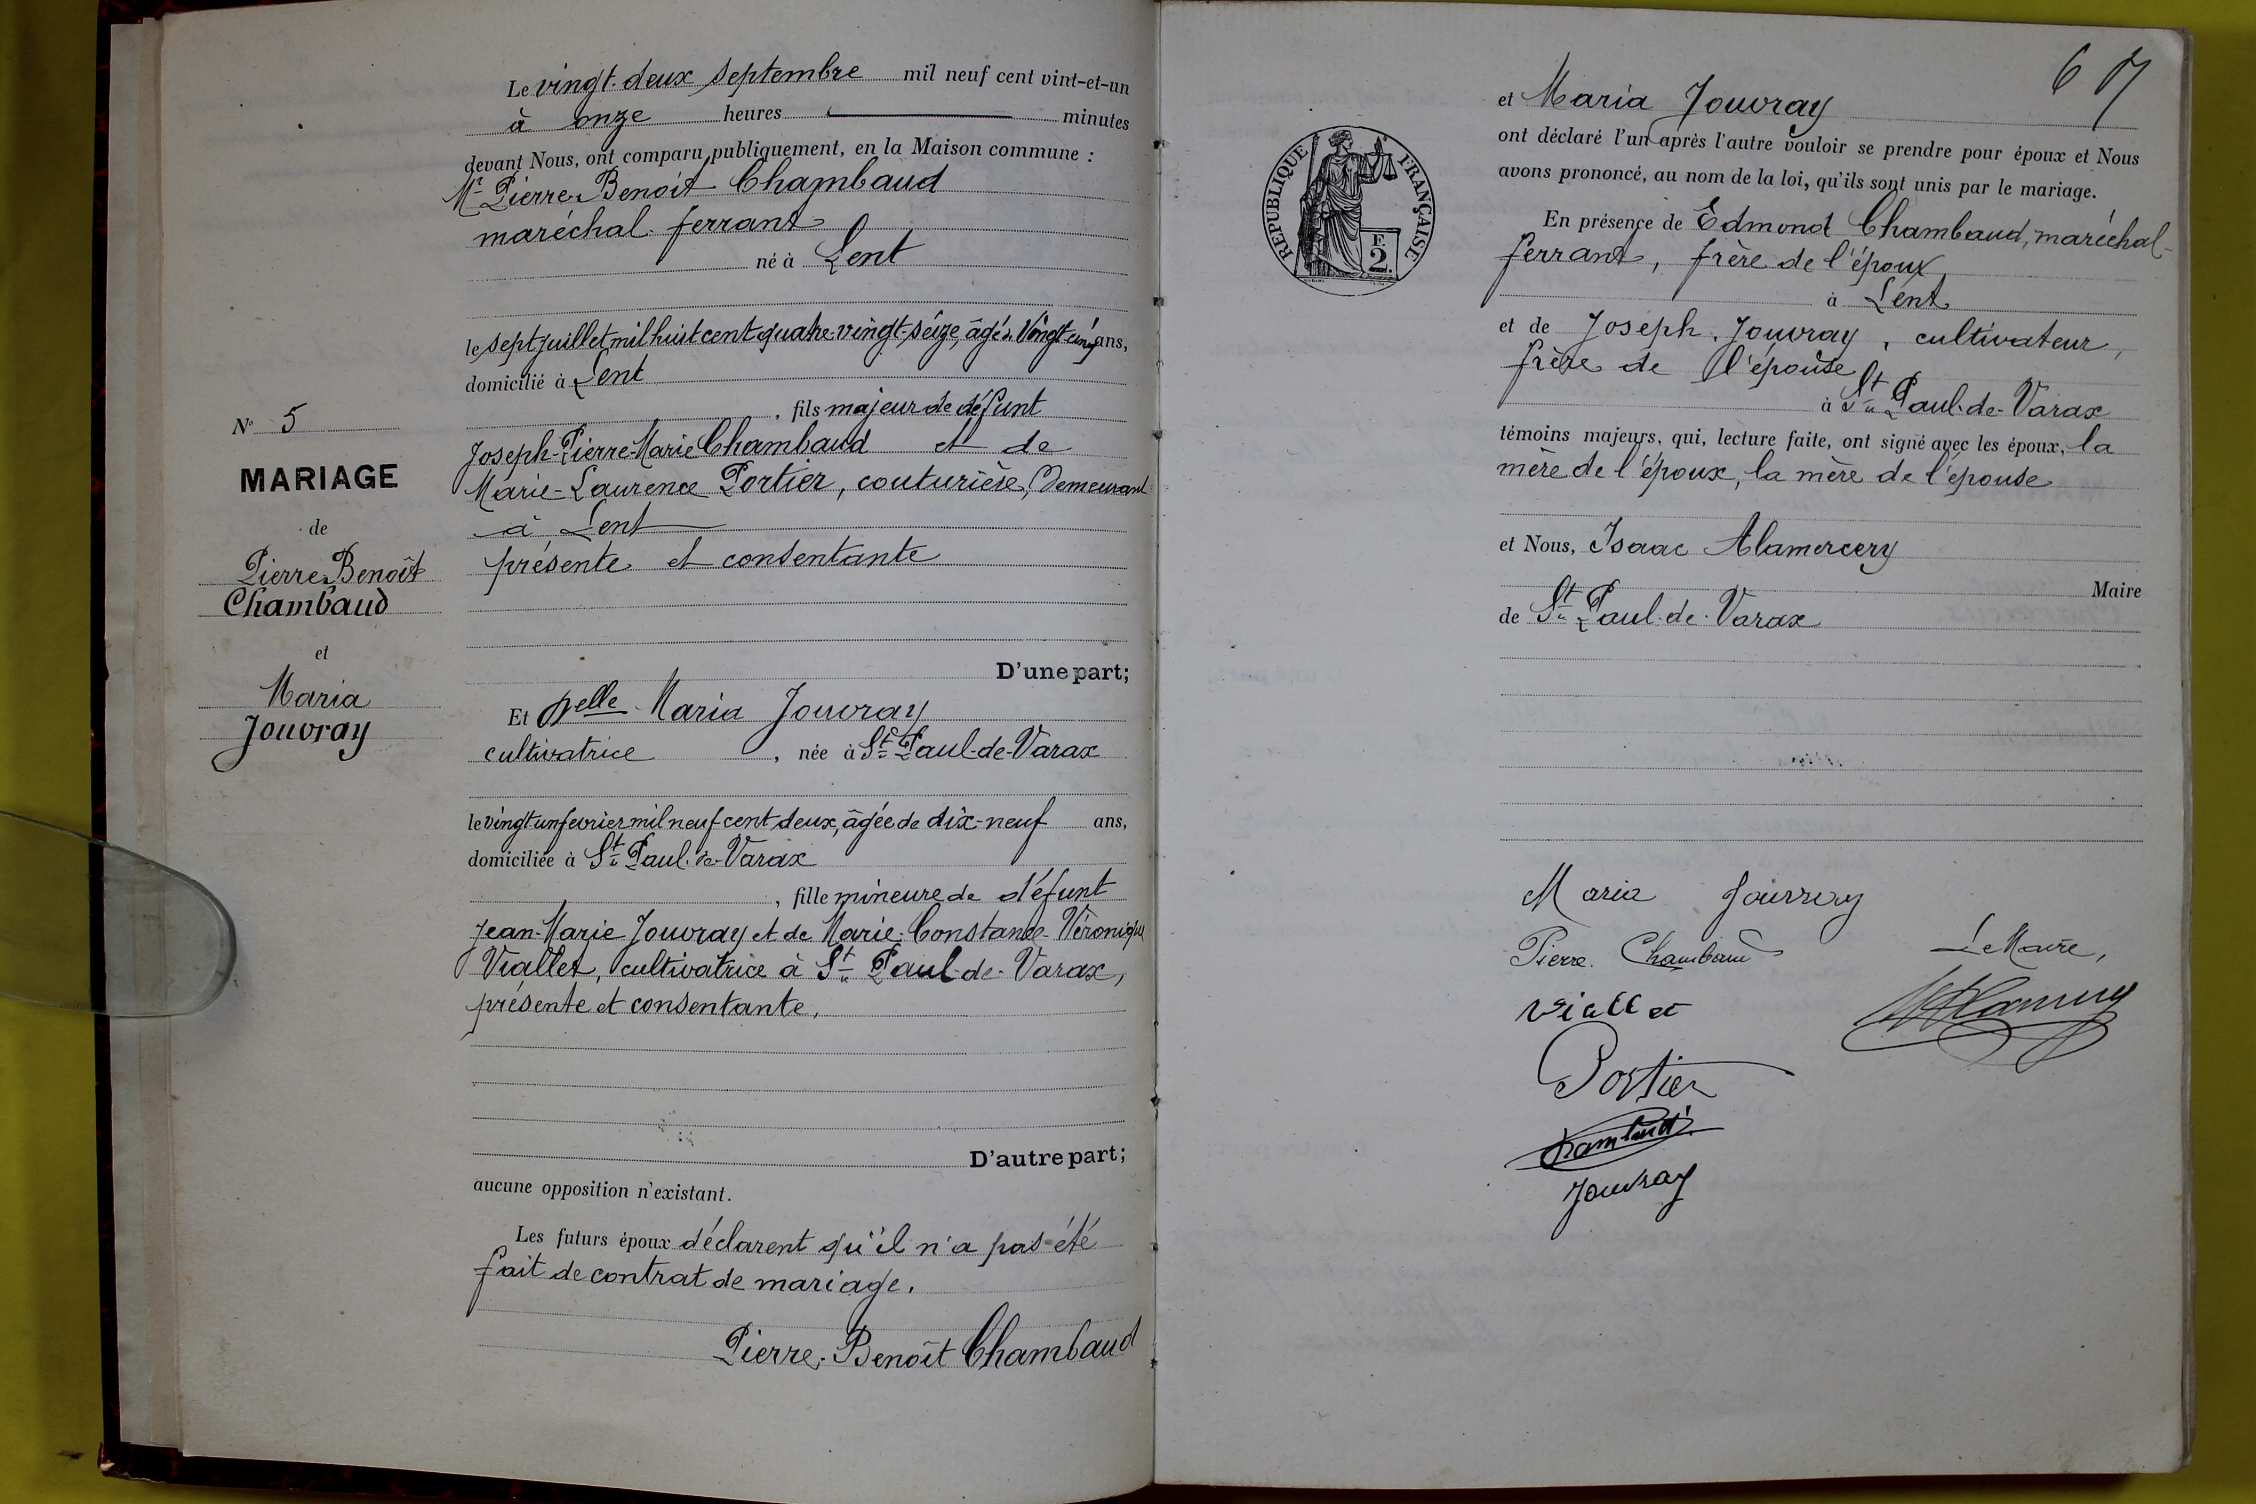 Le vingt-deux Septembre mil neuf cent vint-et-un
à onze heures minutes
devant Nous, ont comparu publiquement, en la Maison commune :
Mr Pierre Benoît Chambaud
maréchal-ferrant
né à Lent
le sept juillet mil huit cent quatre-vingt-seize, âgé de Vingt cinq ans,
domicilié à Lent
, fils majeur de défunt
Joseph-Pierre-Marie Chambaud et de
Marie-Laurence Portier, couturière, Demeurant
à Lent
présente et consentante
D'une part;
Et Melle Maria Jouvray
cultivatrice , née à St Paul-de-Varax
le vingt un fevrier mil neuf cent deux, âgée de dix-neuf ans,
domiciliée à St Paul-de-Varax
, fille mineure de défunt
Jean-Marie Jouvray et de Marie-Constance-Véronique
Viallet, cultivatrice à St Paul-de-Varax,
présente et consentante.
D'autre part;
aucune opposition n'existant.
Les futurs époux déclarent qu'il n'a pas été
fait de contrat de mariage.
Pierre-Benoît Chambaud
No 5
MARIAGE
de
Pierre Benoît
Chambaud
et
Maria
Jouvray
67
RÉPUBLIQUE FRANÇAISE
F.
2.
et Maria Jouvray
ont déclaré l'un après l'autre vouloir se prendre pour époux et Nous
avons prononcé, au nom de la loi, qu'ils sont unis par le mariage.
En présence de Edmond Chambaud, maréchal-
ferrant, frère de l'époux
à Lent
et de Joseph Jouvray, cultivateur,
frère de l'épouse
à St Paul-de-Varax
témoins majeurs, qui, lecture faite, ont signé avec les époux, la
mère de l'époux, la mère de l'épouse
et Nous, Isaac Alamercery
Maire
de St Paul-de-Varax
Maria Jouvray
Pierre Chambaud
Le Maire,
Viallet
Portier
Chambaud
Jouvray